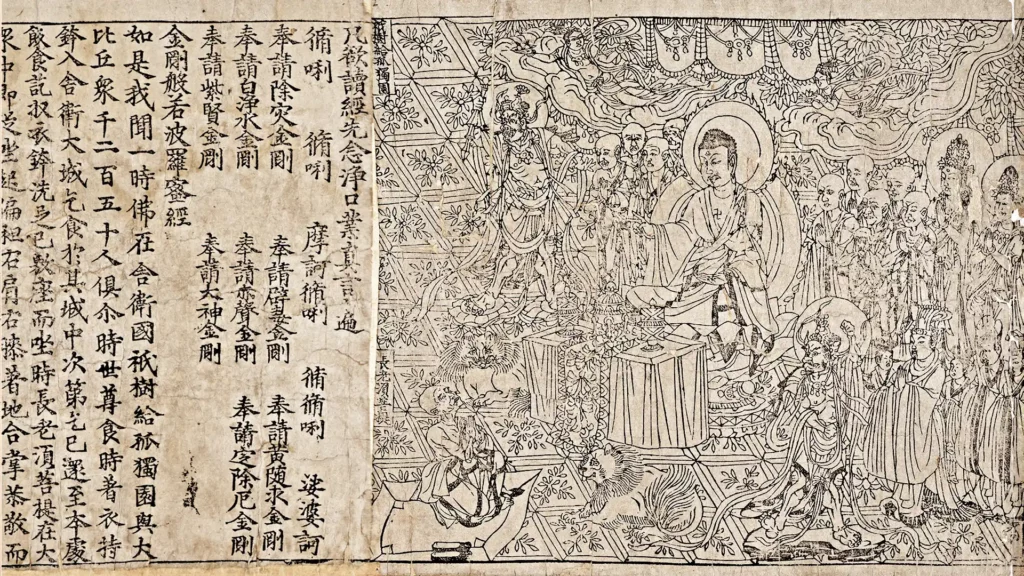 祇樹給孤獨園
長老須菩提
凡欲讀經先念淨口業真言一遍
脩唎 脩唎 摩訶脩唎 脩脩唎 娑婆訶
奉請除灾金剛 奉請辟毒金剛 奉請黃隨求金剛
奉請白淨水金剛 奉請赤聲金剛 奉請定除厄金剛
奉請紫賢金剛 奉請大神金剛
金剛般若波羅蜜經
如是我聞一時佛在舍衛國祇樹給孤獨園與大
比丘眾千二百五十人俱尒時世尊食時著衣持
鉢入舍衛大城乞食於其城中次第乞已還至本處
飯食訖收衣鉢洗足已敷座而坐時長老須菩提在大
眾中即從坐起偏袒右肩右膝著地合掌恭敬而